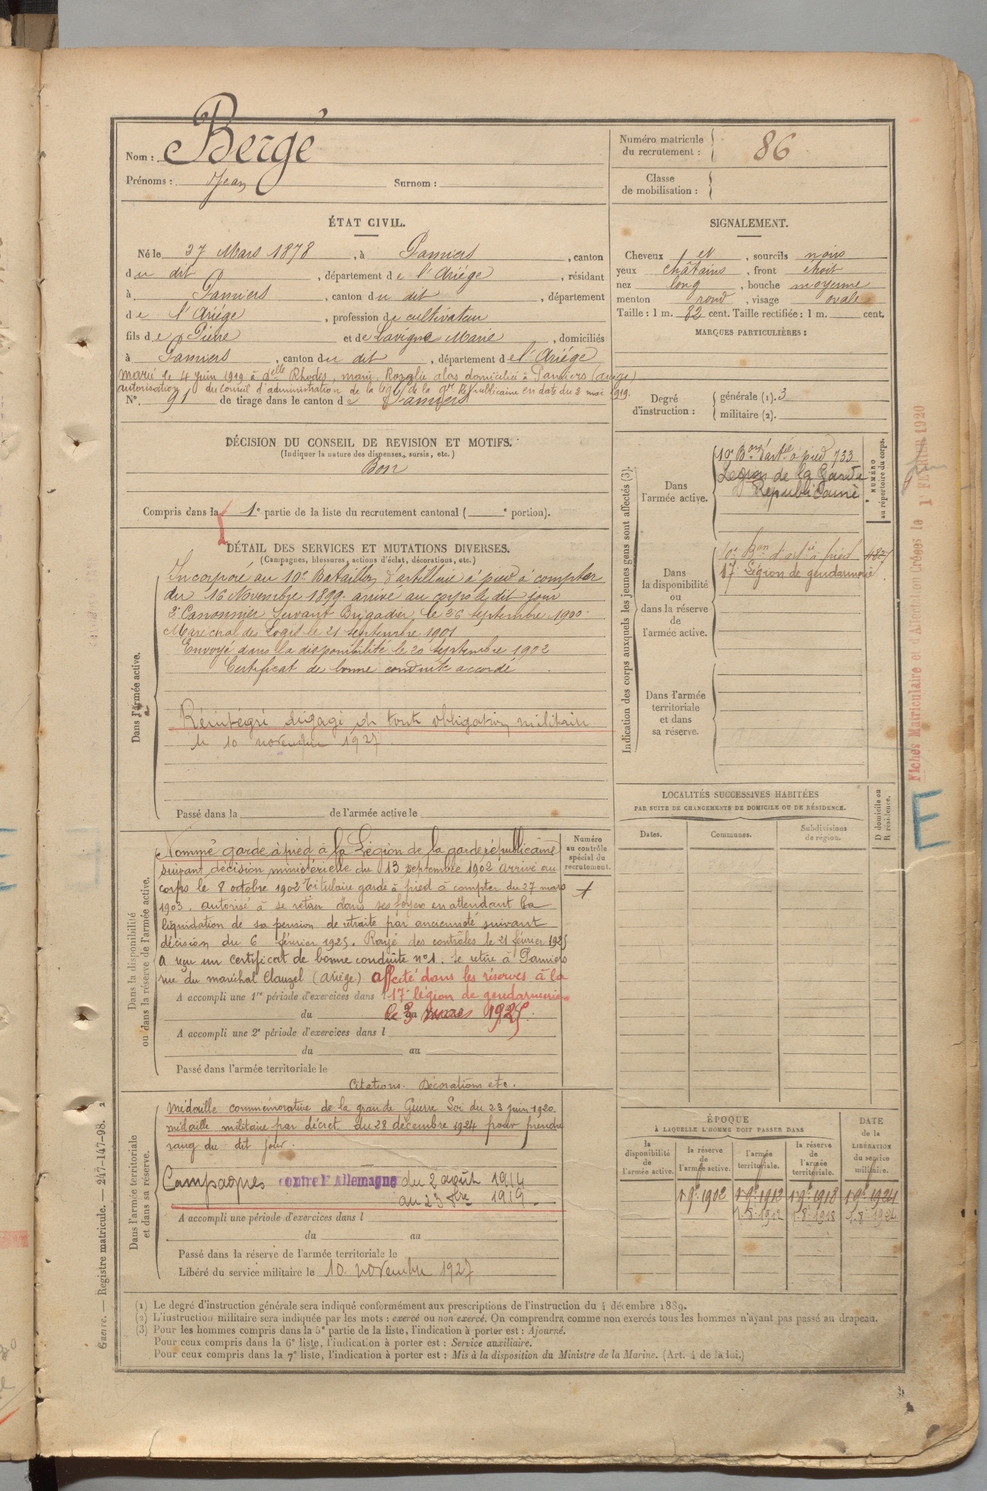 Nom : Bergé
Prénoms : Jean Surnom :
Numéro matricule du recrutement : 86
Classe de mobilisation :
ÉTAT CIVIL.
Né le 27 Mars 1878, à Pamiers, canton
du dit, département de l'Ariège, résidant
à Pamiers, canton du dit, département
de l'Ariège, profession de cultivateur
fils de Pierre et de Lavigne Marie, domiciliés
à Pamiers, canton du dit, département de l'Ariège
Marié le 4 juin 1919 à delle Rhodes, marie, Rosalie alors domiciliée à Pamiers (Ariège)
autorisation du Conseil d'administration de la Légion de la Gde Républicaine en date du 3 mai 1919.
N° 91 de tirage dans le canton de Pamiers
SIGNALEMENT.
Cheveux et, sourcils noirs
yeux châtains, front étroit
nez long, bouche moyenne
menton rond, visage ovale
Taille : 1 m. 82 cent. Taille rectifiée : 1 m. cent.
MARQUES PARTICULIÈRES :
Degré d'instruction : générale (1). 3
militaire (2).
DÉCISION DU CONSEIL DE REVISION ET MOTIFS.
(Indiquer la nature des dispenses, sursis, etc.)
Bon
Compris dans la 1e partie de la liste du recrutement cantonal ( e portion).
DÉTAIL DES SERVICES ET MUTATIONS DIVERSES.
(Campagnes, blessures, actions d'éclat, décorations, etc.)
Dans l'armée active.
Incorporé au 10e Bataillon d'artillerie à pied à compter
du 16 Novembre 1899. arrivé au corps le dit jour
2e Canonnier Servant Brigadier le 26 septembre 1900
Maréchal des Logis le 21 septembre 1901
Envoyé dans la disponibilité le 20 septembre 1902
Certificat de bonne conduite accordé
dégagé de toute obligation militaire
le 10 novembre 1927
Passé dans la de l'armée active le
Dans la disponibilité ou dans la réserve de l'armée active.
Numéro au contrôle spécial du recrutement.
Nommé garde à pied à la Légion de la garde républicaine
suivant décision ministérielle du 13 septembre 1902 Arrivé au
corps le 8 octobre 1902 Titulaire garde à pied à compter du 27 mars
1903. autorisé à se retirer dans ses foyers en attendant la
liquidation de sa pension de retraite par ancienneté suivant
décision du 6 février 1925. Rayé des contrôles le 21 février 1925
A reçu un certificat de bonne conduite n°1. Se retire à Pamiers
rue du maréchal Clauzel (Ariège) affecté dans les réserves à la
A accompli une 1re période d'exercices dans l 17e légion de gendarmerie
du au
le 3 mars 1925.
A accompli une 2e période d'exercices dans l
du au
Passé dans l'armée territoriale le
Citations. Décorations etc.
Dans l'armée territoriale et dans sa réserve.
Médaille commémorative de la grande Guerre Loi du 23 juin 1920.
médaille militaire par décret du 28 décembre 1924 pour prendre
rang du dit jour.
Campagnes contre l'Allemagne du 2 août 1914
au 23 8bre 1919.
A accompli une période d'exercices dans l
du au
Passé dans la réserve de l'armée territoriale le
Libéré du service militaire le 10 novembre 1927
Indication des corps auxquels les jeunes gens sont affectés (3).
NUMÉRO au répertoire du corps.
Dans l'armée active.
10e Bon d'artie à pied 733
Légion de la Garde
Républicaine
Dans la disponibilité ou dans la réserve de l'armée active.
Bon d'artie à pied
17 Légion de gendarmerie
Dans l'armée territoriale et dans sa réserve.
LOCALITÉS SUCCESSIVES HABITÉES
PAR SUITE DE CHANGEMENTS DE DOMICILE OU DE RÉSIDENCE.
Dates. Communes. Subdivisions de région. D domicile ou R résidence.
ÉPOQUE
À LAQUELLE L'HOMME DOIT PASSER DANS
la disponibilité de l'armée active.
la réserve de l'armée active.
l'armée territoriale.
la réserve de l'armée territoriale.
DATE de la LIBÉRATION du service militaire.
1 9e 1902 1 9e 1912 1 9e 1918 1 9e 1924
1.8.1912 1.8.1918 1.8.1924
Fiches Matriculaire et d'Affectation créées le 1 FÉVRIER 1920
E
Guerre. — Registre matricule. — 247-147-98.
(1) Le degré d'instruction générale sera indiqué conformément aux prescriptions de l'instruction du 4 décembre 1889.
(2) L'instruction militaire sera indiquée par les mots : exercé ou non exercé. On comprendra comme non exercés tous les hommes n'ayant pas passé au drapeau.
(3) Pour les hommes compris dans la 5e partie de la liste, l'indication à porter est : Ajourné.
Pour ceux compris dans la 6e liste, l'indication à porter est : Service auxiliaire.
Pour ceux compris dans la 7e liste, l'indication à porter est : Mis à la disposition du Ministre de la Marine. (Art. 4 de la loi.)